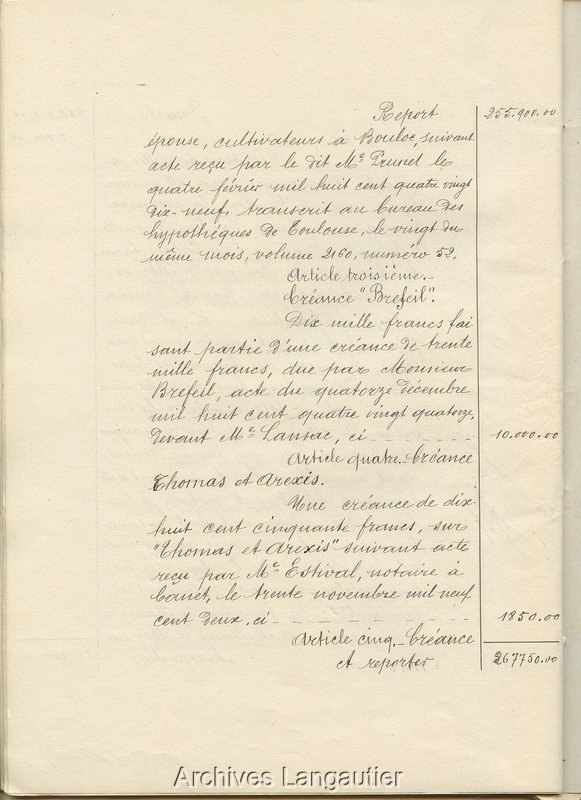 Report 255.900.00
épouse, cultivateurs à Bouloc, suivant
acte reçu par le dit Me Prunet le
quatre février mil huit cent quatre vingt
dix-neuf, transcrit au bureau des
hypothèques de Toulouse, le vingt du
même mois, volume 2160, numéro 52.
Article troisième._
Créance "Brefeil".
Dix mille francs fai
sant partie d'une créance de trente
mille francs, due par Monsieur
Brefeil, acte du quatorze décembre
mil huit cent quatre vingt quatorze,
devant Me Lansac, ci _ _ _ _ _ 10.000.00
Article quatre._ Créance
Thomas et Arexis.
Une créance de dix-
huit cent cinquante francs, sur
"Thomas et Arexis" suivant acte
reçu par Me Estival, notaire à
le trente novembre mil neuf
cent deux, ci _ _ _ _ _ 1850.00
Article cinq._ Créance
A reporter 267750.00
Archives Langautier